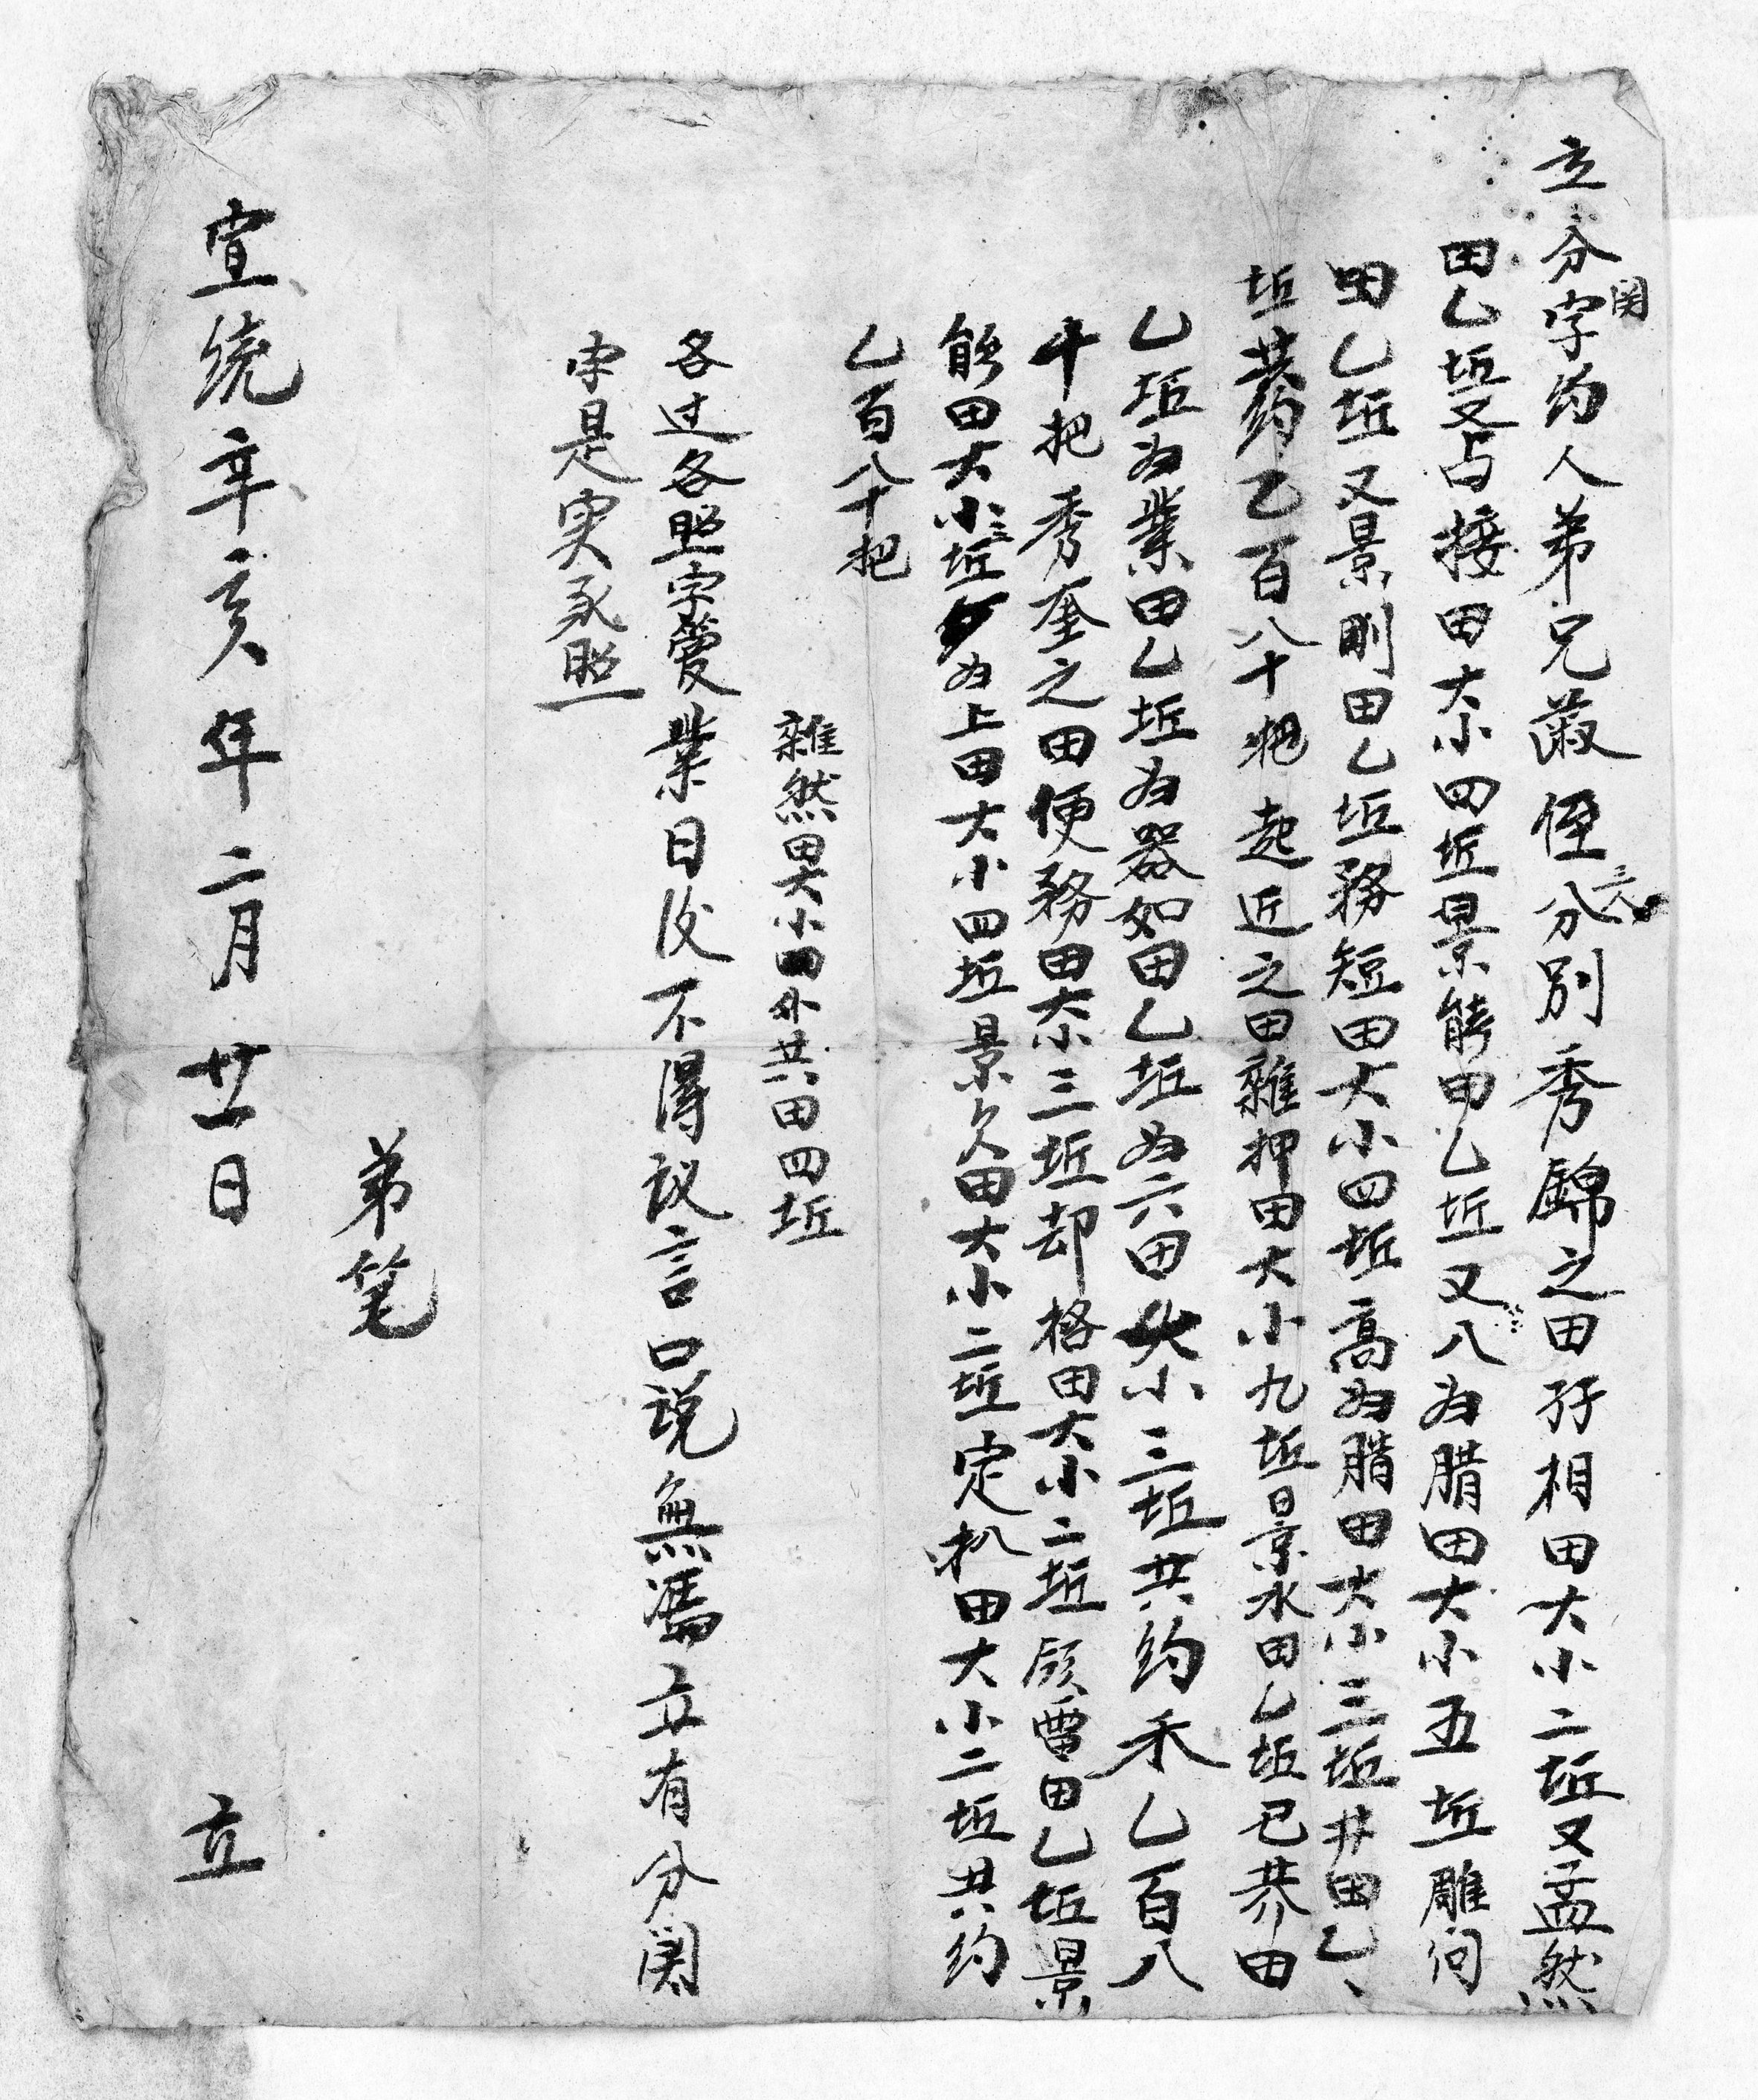 立分関字约人弟兄菽侄三人分别秀錦之田孖相田大小二坵又孟然
田乙坵又占接田大小四坵景能田乙坵又八为腊田大小五坵雕问
田乙坵又景刚田乙坵務短田大小四坵高为腊田大小三坵井田乙
坵共约乙百八十把起近之田雜押田大小九坵景水田乙坵已恭田
乙坵为業田乙坵为器如田乙坵为六田大小三坵共约禾乙百八
十把秀奎之田便務田大小三坵却格田大小二坵领雷田乙坵景
能田大小三坵为上田大小四坵景久田大小二坵定扒田大小二坵共约
乙百八十把
雜然田大小四外共田四坵
各过各照字管業日後不得议言口说無馮立有分関
字是实永照
弟笔
宣统辛亥年二月廿一日 立